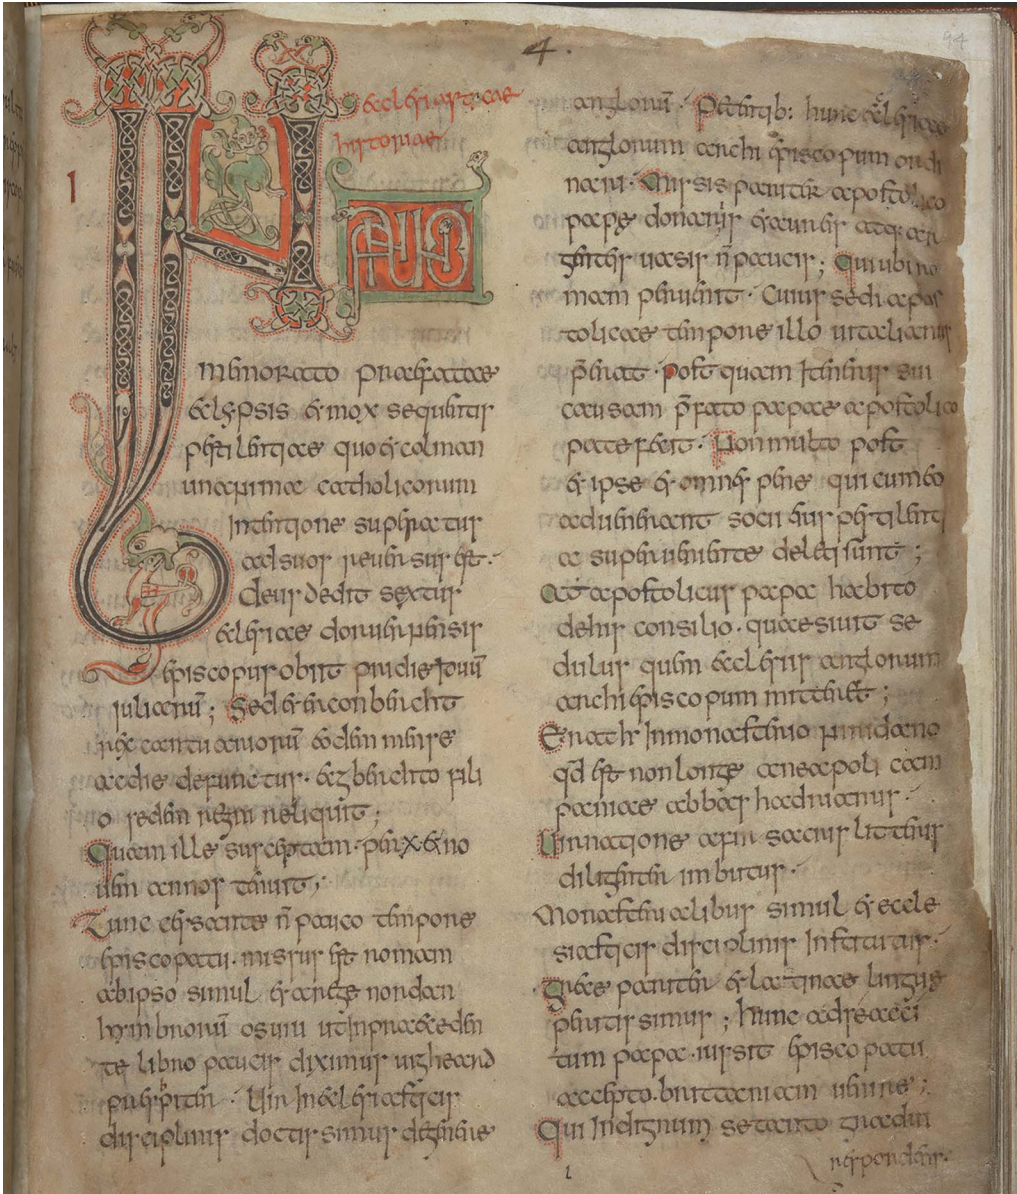 4.
94
ecclesiasticae
historiae
I
ANNO
memorato praefatae
eclypsis et mox sequentis
pestilentiae quo et colman
unanimae catholicorum
intentione superatus
ad suos reversus est.
deus dedit sextus
eclesiae doruvernsis
episcopus obiit pridie iduum
iulianū; Sed et erconberht
rex cantuariorū eodem mense
ac die defunctus. ecgberhto fili
o sedem regni reliquit;
Quam ille susceptam per X et no
vem annos tenuit;
Tunc cessante ñ pauco tempore
episcopatu. missus est romam
ab ipso simul et a rege nordan
hymbrorū osuiu ut in praeceden
te libro paucis diximus uigheard
presbiter. Uir in eclesiasticis
disciplinis doctissimus de genere
anglorū. Petentib: hunc eclesiae
anglorum archiepiscopum ordi
nari. Missis pariter apostolico
papę donariis et aureis atque ar
genteis vasis ñ paucis; Qui ubi ro
mam pervenit. Cuius sedi apos
tolicae tempore illo vitalianus
p̄erat. Postquam itineris sui
causam p̄fato papae apostolico
patefecit. Non multo post
et ipse et omnes pene qui cum eo
advenerant socii eius pestilenti
a superveniente deleti sunt;
At apostolicus papa habito
de his consilio. quaesivit se
dulus quem ecclesiis anglorum
archiepiscopum mitteret;
Erat hr in monasterio niridano
qd est non longe a neapoli cam
paniae abbas hadrianus.
Uir natione afir sacris litteris
diligenter imbutus.
Monasterialibus simul et eccle
siasticis disciplinis institutus.
grece pariter et latinae linguę
peritissimus; hunc ad se acci
tum papa iussit episcopatu
accepto. brittaniam venire;
Qui indignum se tanto gradui
respondens.